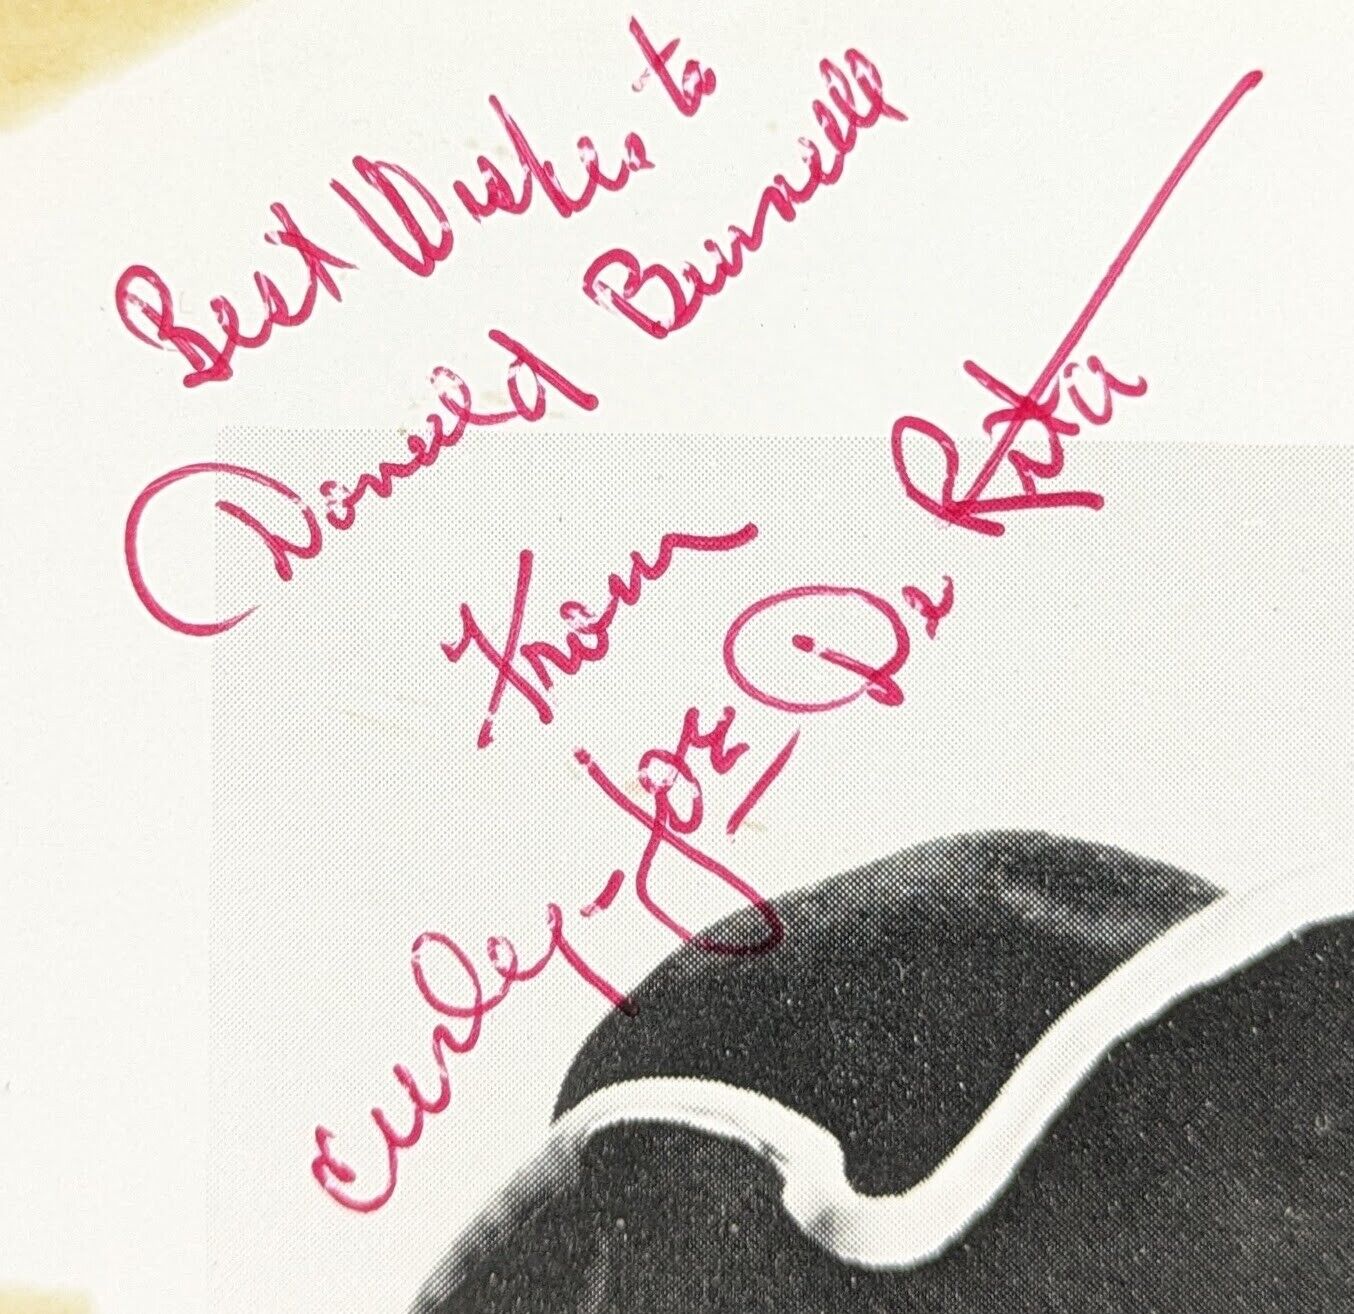 Best Wishes to
Donald Burnell
From
Curley-Joe De Rita